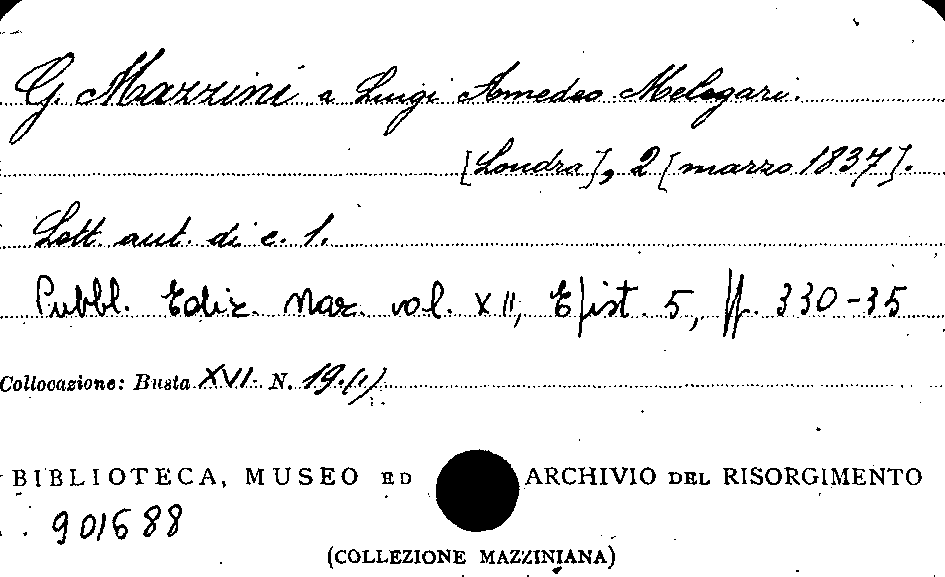 G. Mazzini a Luigi Amedeo Melegari.
[Londra], 2 [marzo 1837].
Lett. aut. di c. 1.
Pubbl. Ediz. Naz. vol. XII, Epist. 5, pp. 330-35
Collocazione: Busta XVI. N. 19.(1)
BIBLIOTECA, MUSEO ED ARCHIVIO DEL RISORGIMENTO
901688
(COLLEZIONE MAZZINIANA)